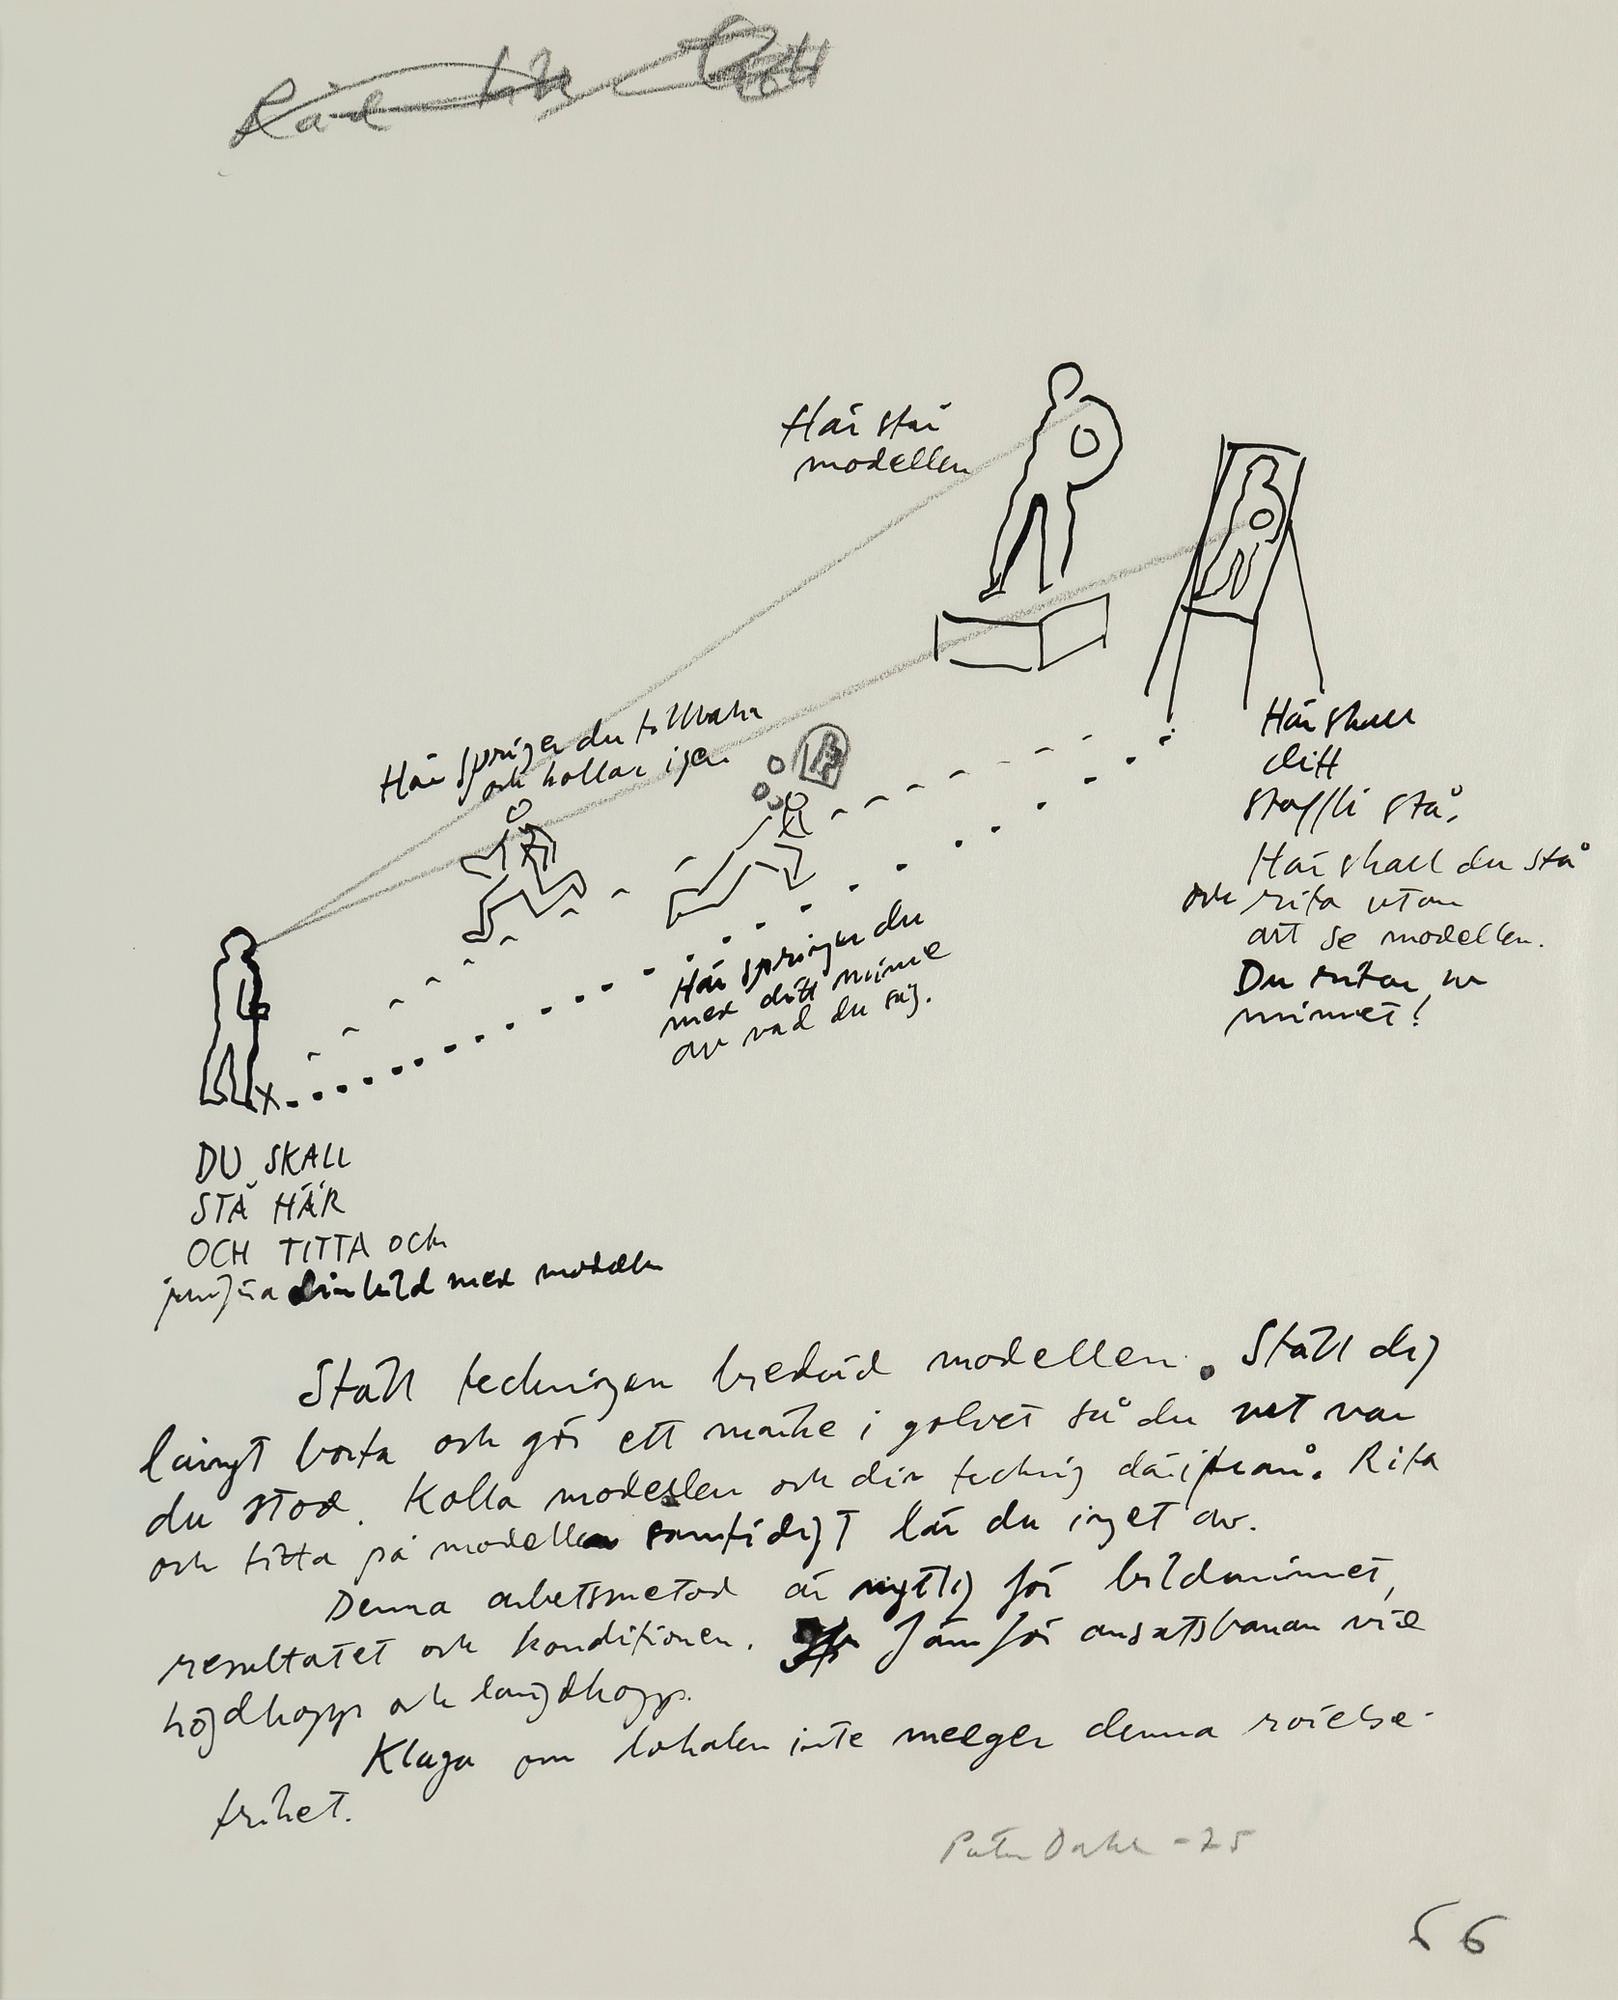 Råd till
Här står
modellen
Här springer du tillbaka
och kollar igen
Här skall
ditt
staffli stå.
Här skall du stå
och rita utan
att se modellen.
Du ritar ur
minnet!
Här springer du
med ditt minne
av vad du såg.
DU SKALL
STÅ HÄR
OCH TITTA och
jämföra din bild med modellen
Ställ teckningen bredvid modellen. Ställ dig
långt borta och gör ett märke i golvet så du vet var
du stod. Kolla modellen och din teckning därifrån. Rita
och titta på modellen samtidigt lär du inget av.
Denna arbetsmetod är nyttig för bildminnet,
resultatet och konditionen. Jämför ansatsbanan vid
höjdhopp och längdhopp.
Klaga om lokalen inte medger denna rörelse-
frihet.
Peter Dahl -75
66